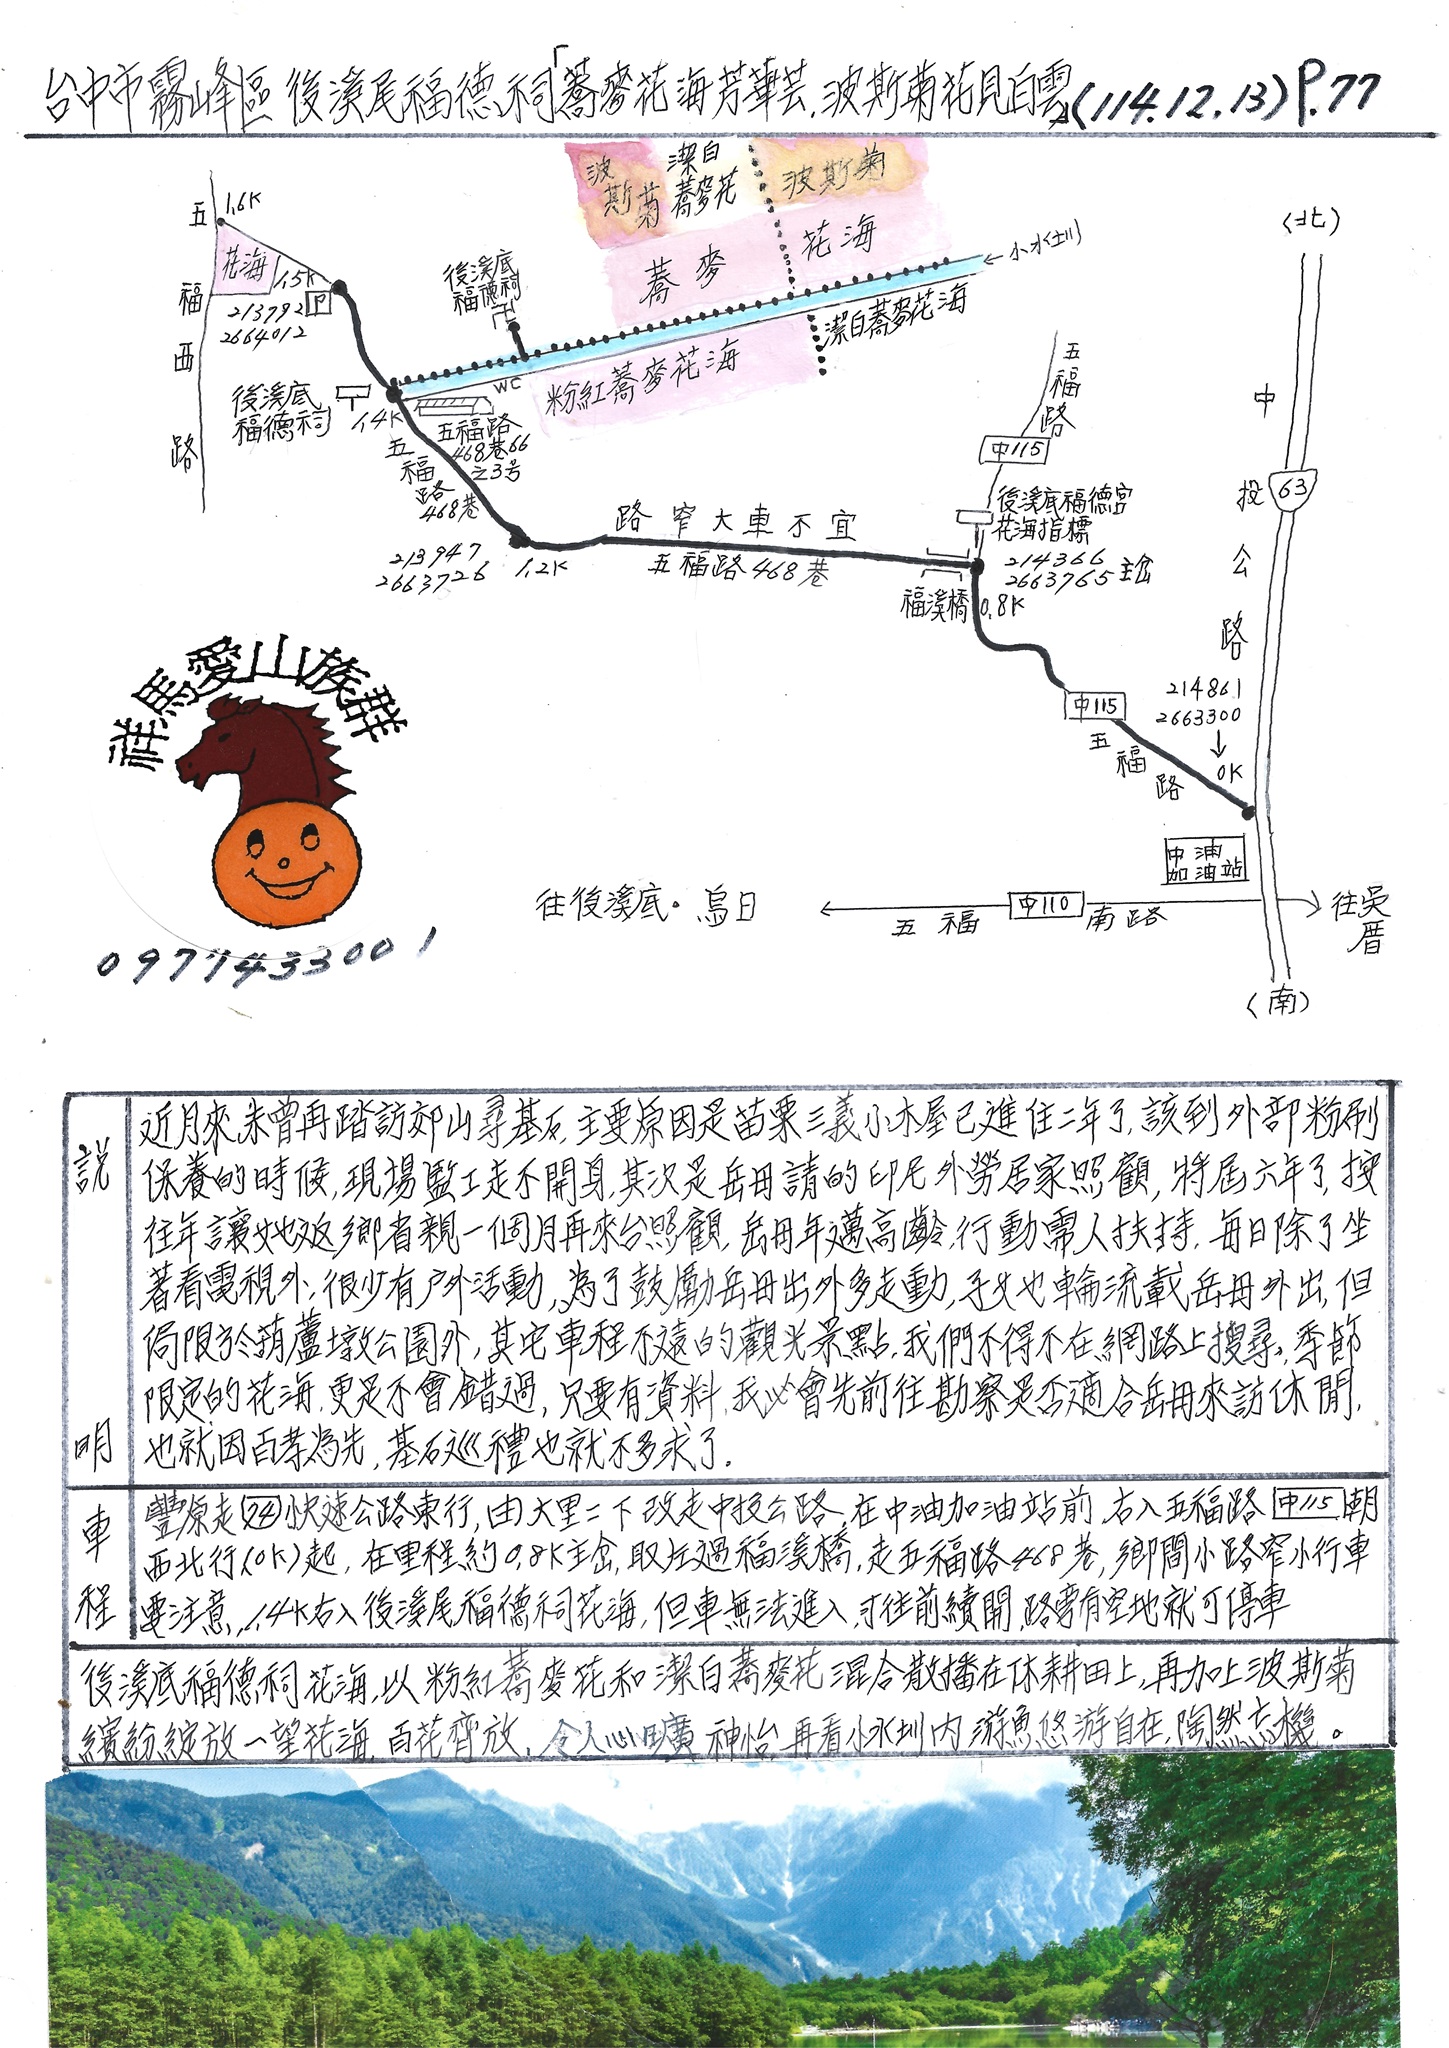 台中市霧峰區 後溪尾福德祠「蕎麥花海芳華芸.波斯菊花見白雲」(114.12.13) P.77
波斯菊
潔白蕎麥花
波斯菊
蕎麥花海
小水圳
潔白蕎麥花海
粉紅蕎麥花海
後溪底福德祠
卍
WC
五福西路
1.6K
花海
1.5K
P
213792
2664012
後溪底福德祠
1.4K
五福路468巷66之3号
五福路468巷
213947
2663726
1.2K
路窄大車不宜
五福路468巷
福溪橋
0.8K
五福路
中115
後溪底福德宮
花海指標
214366
2663765 主岔
中115
五福路
214861
2663300
0K
中油
加油站
(北)
中投公路
63
(南)
往後溪底.烏日
五福
中110
南路
往吳厝
祥馬愛山族群
0977433001
說明
近月來,未曾再踏訪郊山尋基石,主要原因是苗栗三義小木屋已進住二年了,該到外部粉刷
保養的時候,現場監工走不開身,其次是岳母請的印尼外勞居家照顧,將屆六年了,按
往年讓她返鄉省親一個月再來台照顧,岳母年邁高齡,行動需人扶持,每日除了坐
著看電視外,很少有户外活動,為了鼓勵岳母出外多走動,子女也輪流載岳母外出,但
侷限於葫蘆墩公園外,其它車程不遠的觀光景點,我們不得不在網路上搜尋,季節
限定的花海,更是不會錯過,只要有資料,我必會先前往勘察是否適合岳母來訪休閒,
也就因百孝為先,基石巡禮也就不多求了.
車程
豐原走74快速公路東行,由大里二下改走中投公路,在中油加油站前,右入五福路中115朝
西北行(0K)起,在里程約0.8K主岔,取左過福溪橋,走五福路468巷,鄉間小路窄小行車
要注意,1.4K右入後溪尾福德祠花海,但車無法進入,才往前續開,路旁有空地就可停車
後溪底福德祠花海,以粉紅蕎麥花和潔白蕎麥花混合散播在休耕田上,再加上波斯菊
繽紛綻放一望花海,百花齊放,令人心曠神怡,再看小水圳內游魚悠游自在,陶然忘機。